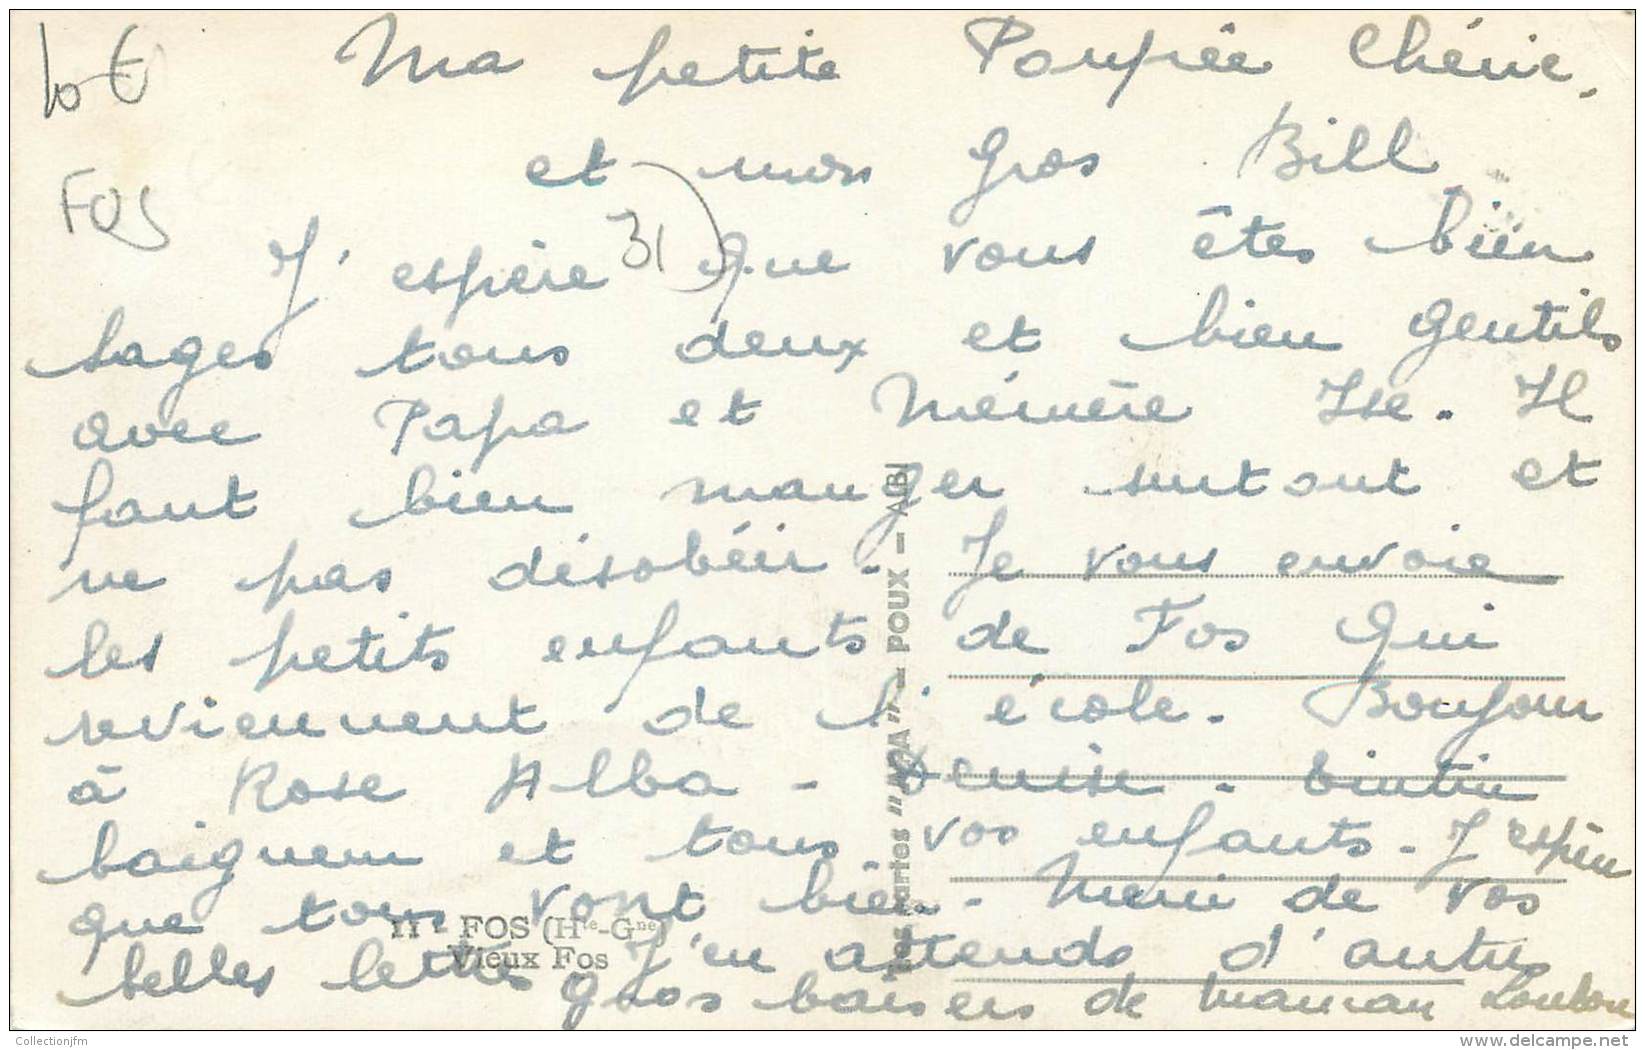 10 €
FOS
31
Ma petite Poupée Chérie,
et mon Gros Bill
J'espère que vous êtes bien
sages tous deux et bien gentils
avec Papa et Mémère Ise. Il
faut bien manger surtout et
ne pas désobéir. Je vous envoie
les petits enfants de Fos qui
reviennent de l'école. Bonjour
à Rose Alba - Denise. tintin
baigneur et tous vos enfants. J'espère
que tous vont bien. Merci de vos
belles lettres J'en attends d'autres
Gros baisers de maman Loulou
11 - FOS (Hte-Gne)
Vieux Fos
"APA" - POUX - ALBI
Collectionjfm
www.delcampe.net